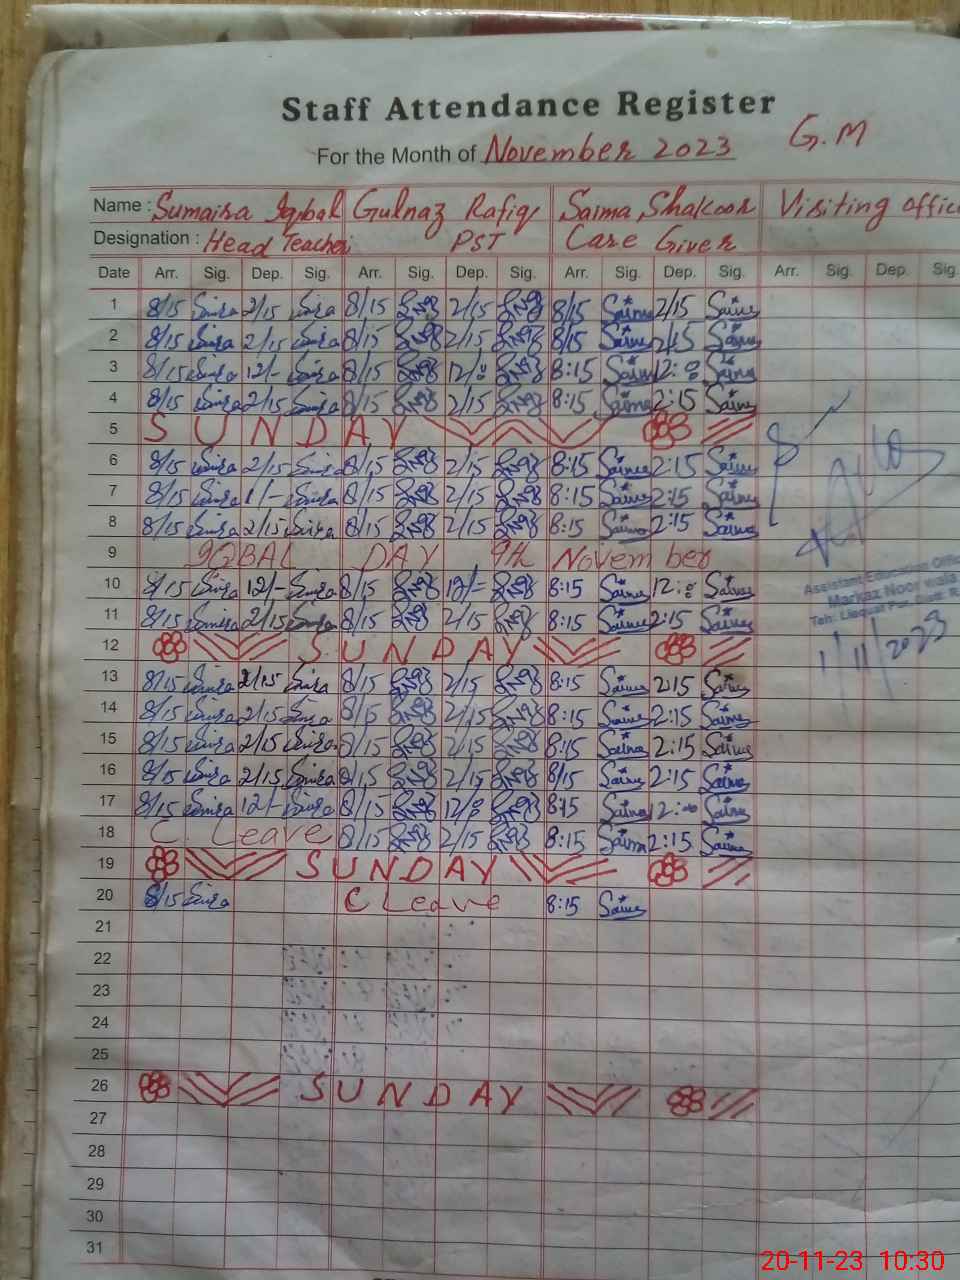 Staff Attendance Register
For the Month of November 2023 G.M
Name : Sumaira Iqbal Gulnaz Rafiq Saima Shakoor Visiting offic
Designation : Head Teacher PST Care Giver
Date Arr. Sig. Dep. Sig. Arr. Sig. Dep. Sig. Arr. Sig. Dep. Sig. Arr. Sig. Dep. Sig.
1 8/15 Simra 2/15 Simra 8/15 2/15 8/15 Saima 2/15 Saima
2 8/15 Simra 2/15 Simra 8/15 2/15 8/15 Saima 2/15 Saima
3 8/15 Simra 12/- Simra 8/15 12/: 8:15 Saima 12:00 Saima
4 8/15 Simra 2/15 Simra 8/15 2/15 8:15 Saima 2:15 Saima
5 SUNDAY
6 8/15 Simra 2/15 Simra 8/15 2/15 8:15 Saima 2:15 Saima
7 8/15 Simra 1/- Simra 8/15 2/15 8:15 Saima 2:15 Saima
8 8/15 Simra 2/15 Simra 8/15 2/15 8:15 Saima 2:15 Saima
9 IQBAL DAY 9th November
10 8/15 Simra 12/- Simra 8/15 12/- 8:15 Saima 12:00 Saima
11 8/15 Simra 2/15 Simra 8/15 2/15 8:15 Saima 2:15 Saima
Assistant Education Offic
Markaz Noor wala
Teh: Liaquat Pur, Distt: R.
1/11/2023
12 SUNDAY
13 8/15 Simra 2/15 Simra 8/15 2/15 8:15 Saima 2:15 Saima
14 8/15 Simra 2/15 Simra 8/15 2/15 8:15 Saima 2:15 Saima
15 8/15 Simra 2/15 Simra 8/15 2/15 8:15 Saima 2:15 Saima
16 8/15 Simra 2/15 Simra 8/15 2/15 8/15 Saima 2:15 Saima
17 8/15 Simra 12/- Simra 8/15 12/: 8:15 Saima 12:00 Saima
18 C. Leave 8/15 2/15 8:15 Saima 2:15 Saima
19 SUNDAY
20 8/15 Simra C Leave 8:15 Saima
21
22
23
24
25
26 SUNDAY
27
28
29
30
31
20-11-23 10:30